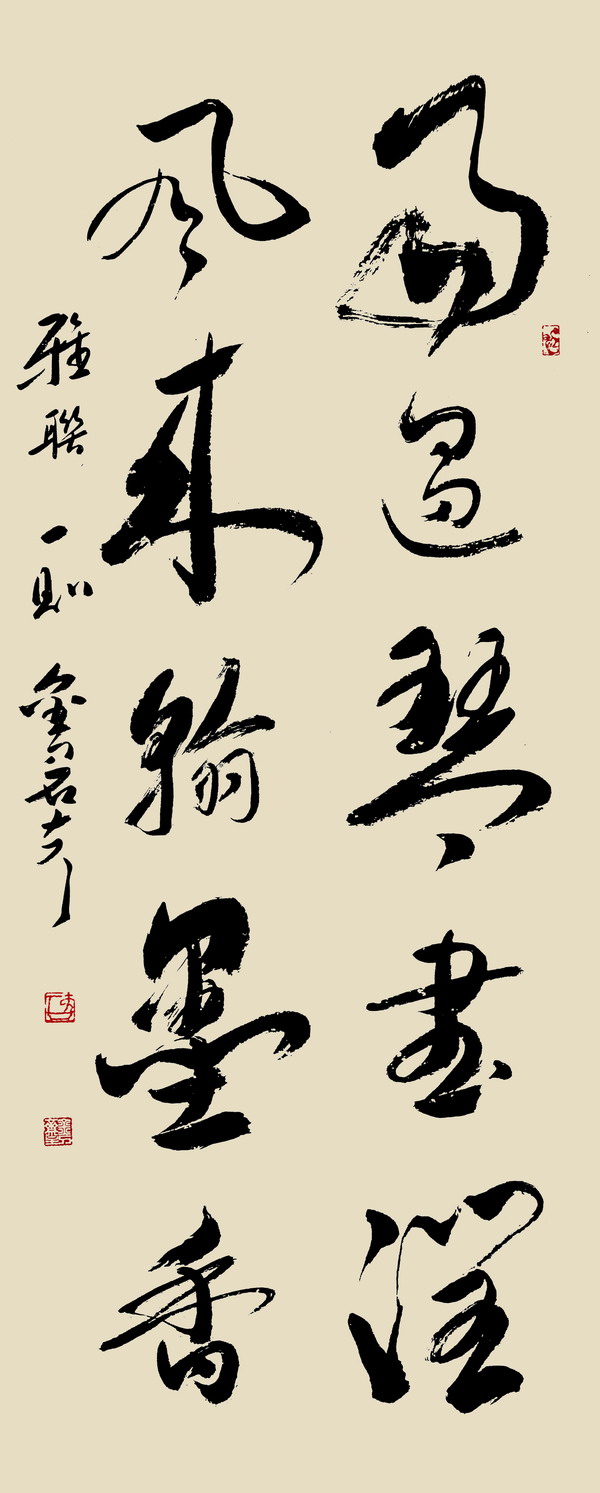 雨過琴書潤
風來翰墨香
雅聯一則